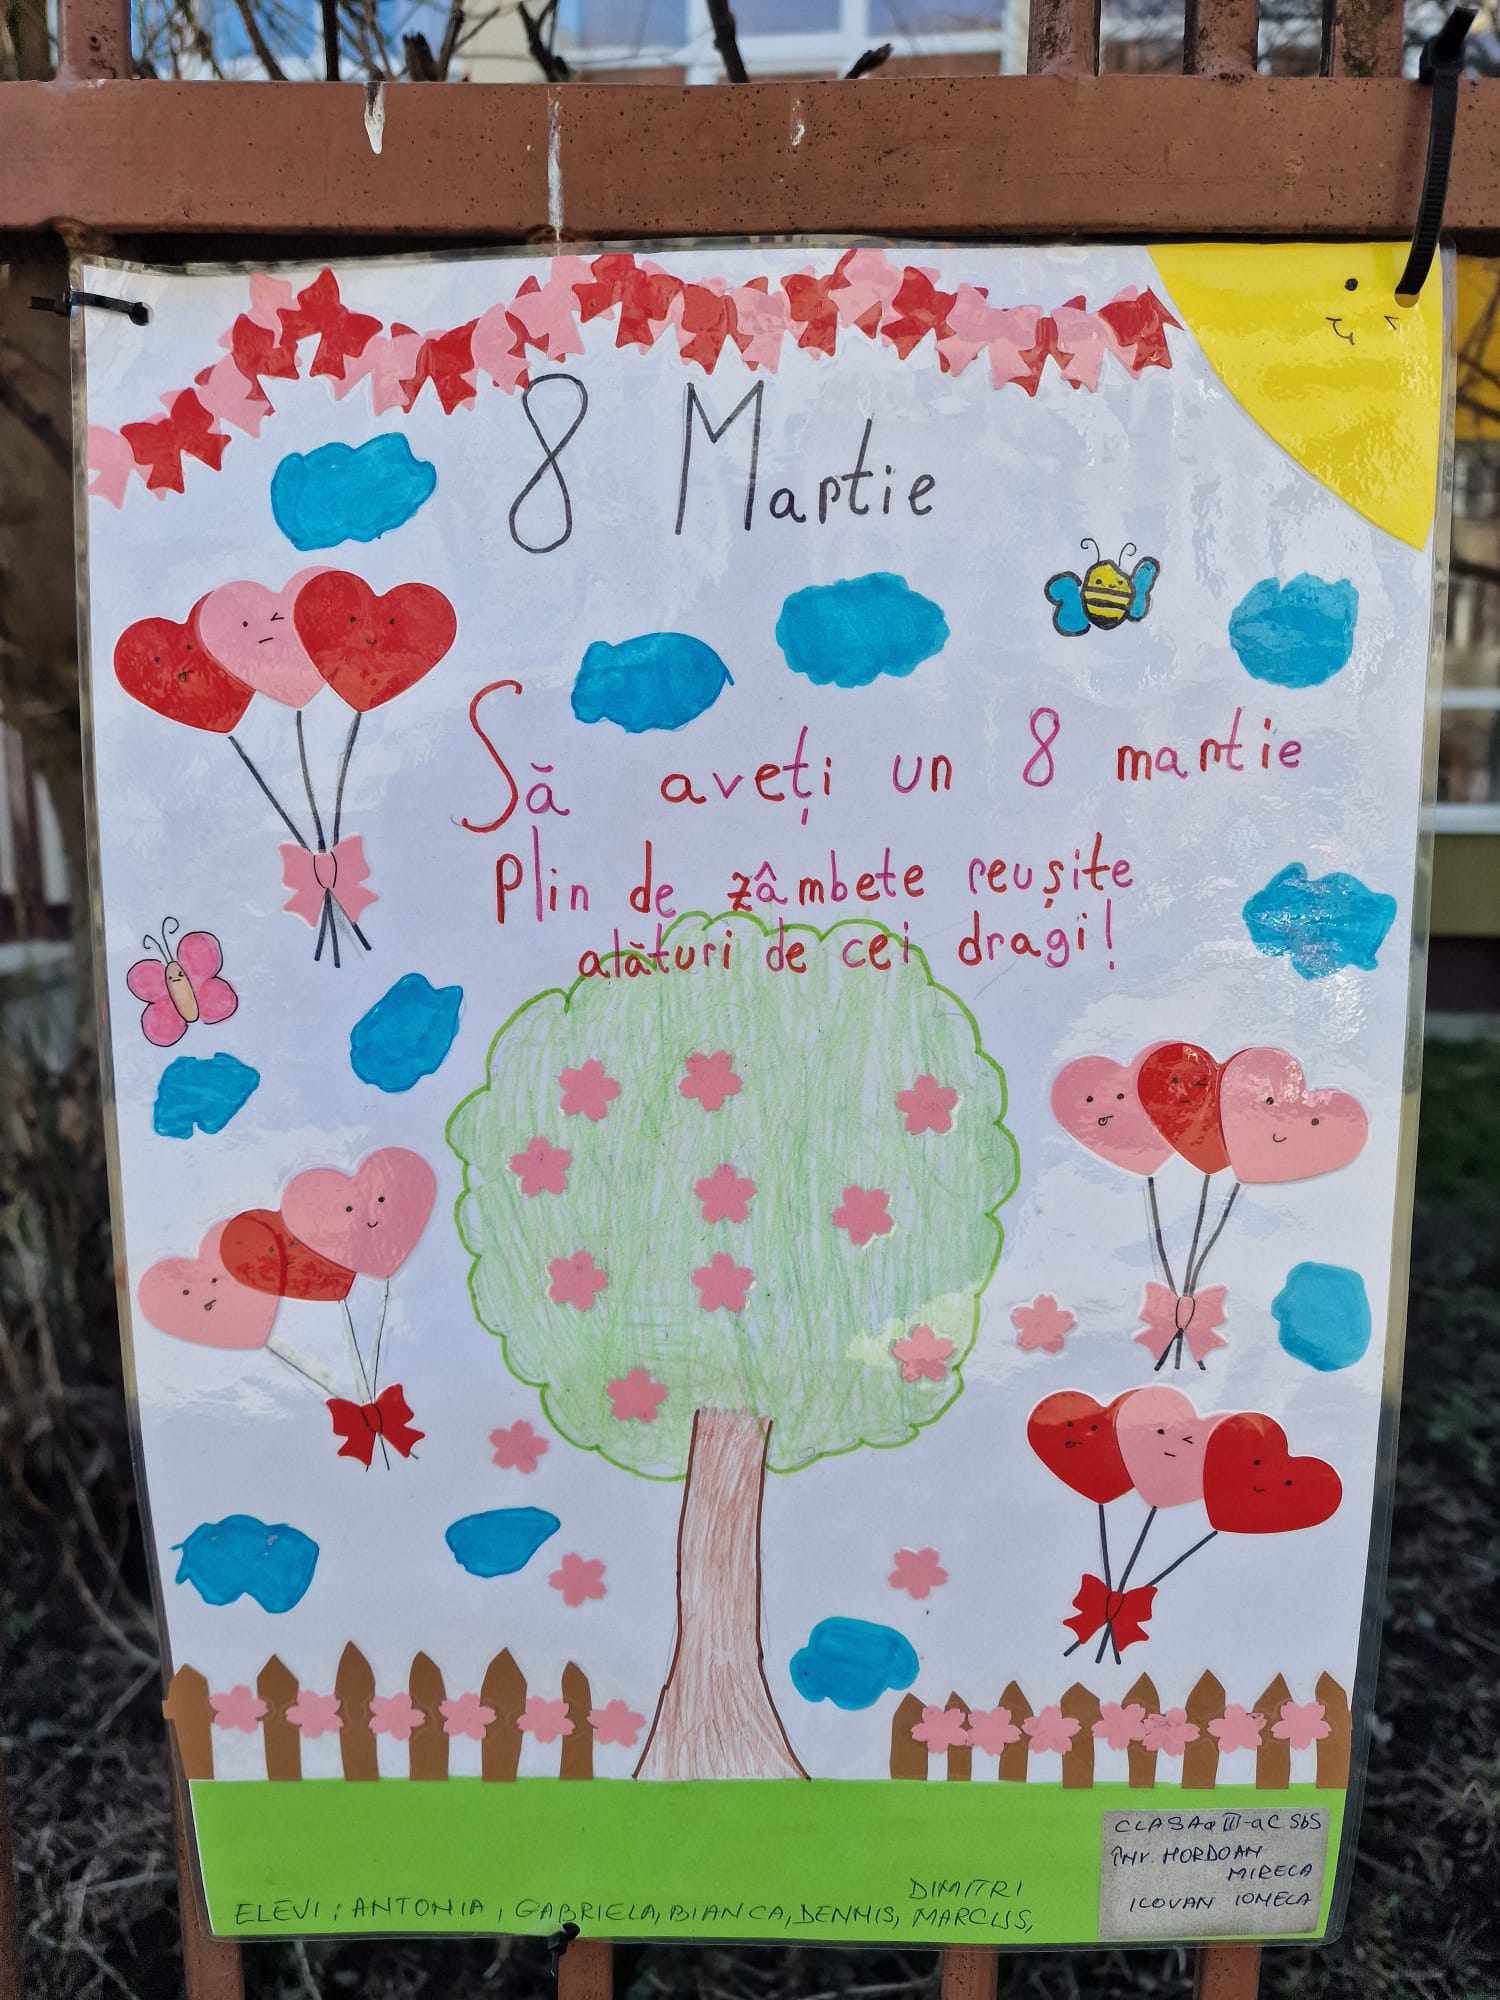 8 Martie
Să aveți un 8 martie
Plin de zâmbete reușite
alături de cei dragi!
CLASA a III-a C SbS
ÎNV. MORDOAN
MIRELA
ILOVAN IONELA
DIMITRI
ELEVI: ANTONIA, GABRIELA, BIANCA, DENNIS, MARCUS,